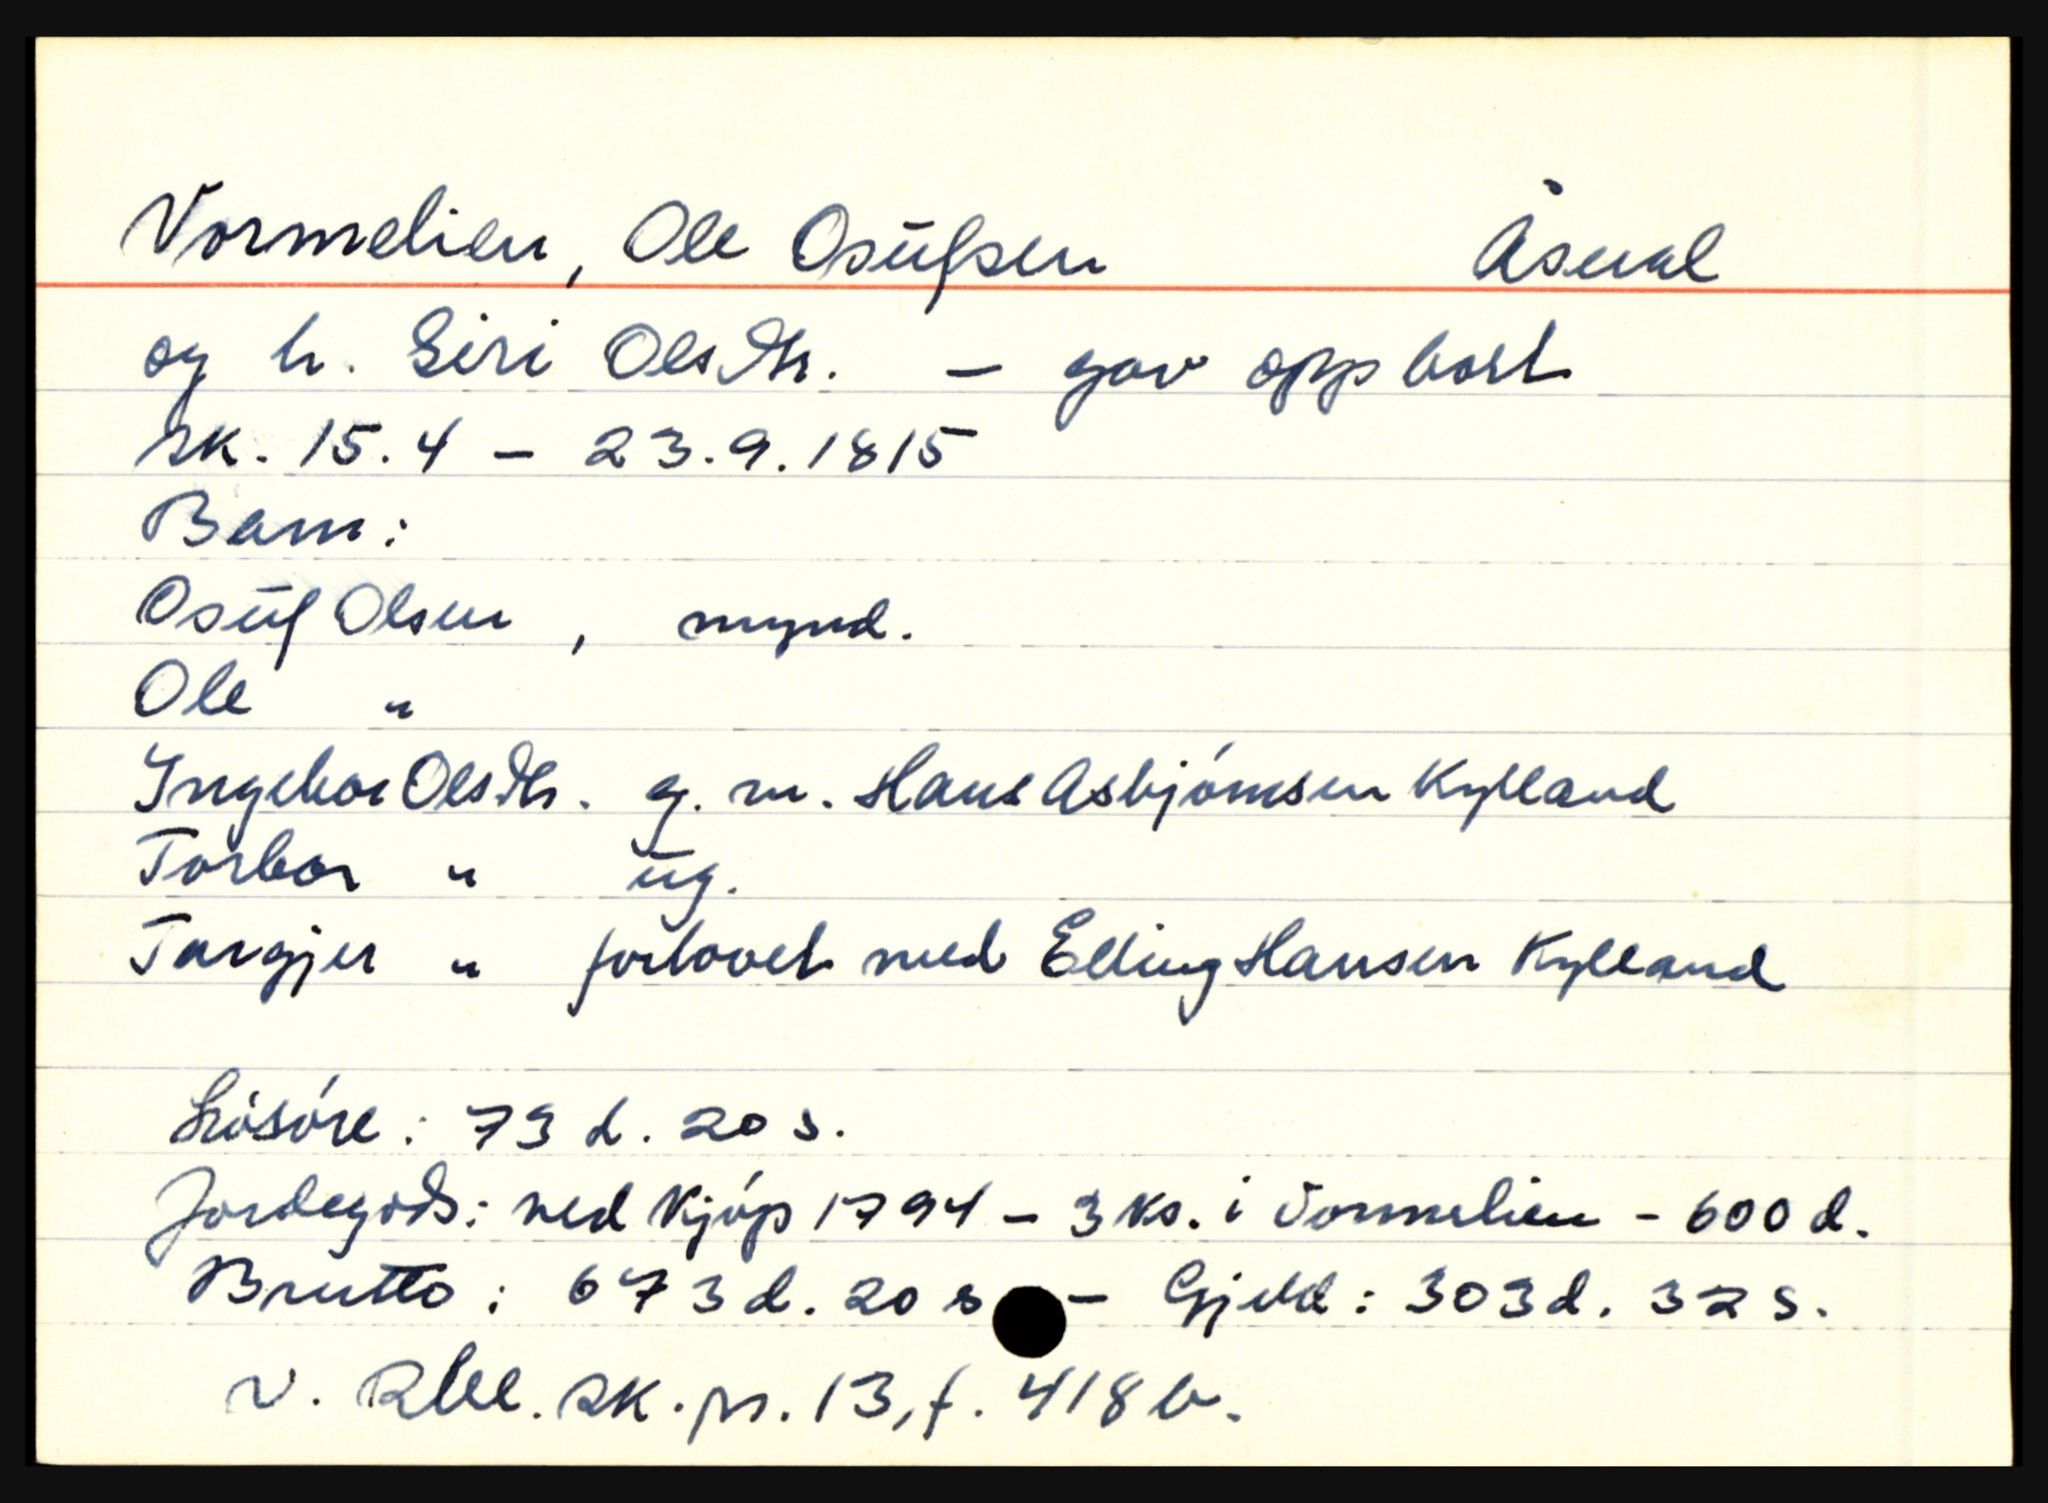 Vormelien, Ole Osufsen Åseral
og h. Siri Olsdtr. - gav opp bort
sk. 15.4 - 23.9.1815
Barn:
Osuf Olsen, mynd.
Ole "
Ingebor Olsdtr. g. m. Hans Asbjörnsen Kylland
Torbor " ug.
Targjer " forlovet med Elling Hansen Kylland
Lösöre: 73 d. 20 s.
Jordegods: ved kjöp 1794 - 3 ks. i Vormelien - 600 d.
Brutto: 673 d. 20 s - Gjeld: 303 d. 32 s.
v. Rbl. sk. pr. 13, f. 418 b.